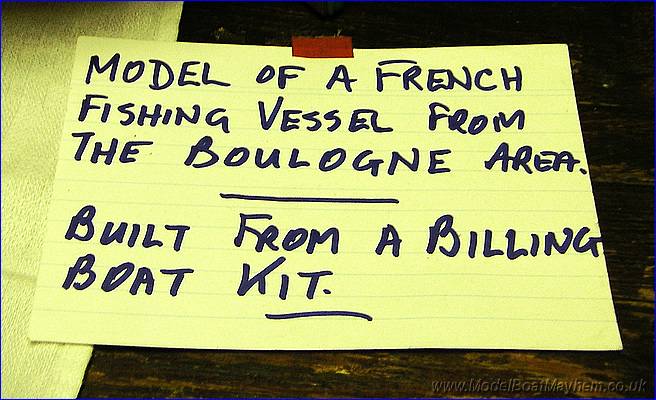 MODEL OF A FRENCH
FISHING VESSEL FROM
THE BOULOGNE AREA.
BUILT FROM A BILLING
BOAT KIT.
www.ModelBoatMayhem.co.uk